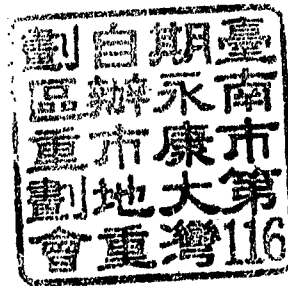 臺南市第116
期永康大灣
自辦市地重
劃區重劃會